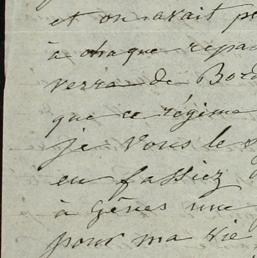 et on avait pe
à chaque repa
verra de Bord
que ce régime
je vous le
en fassiez
à Gênes une
pour ma vie